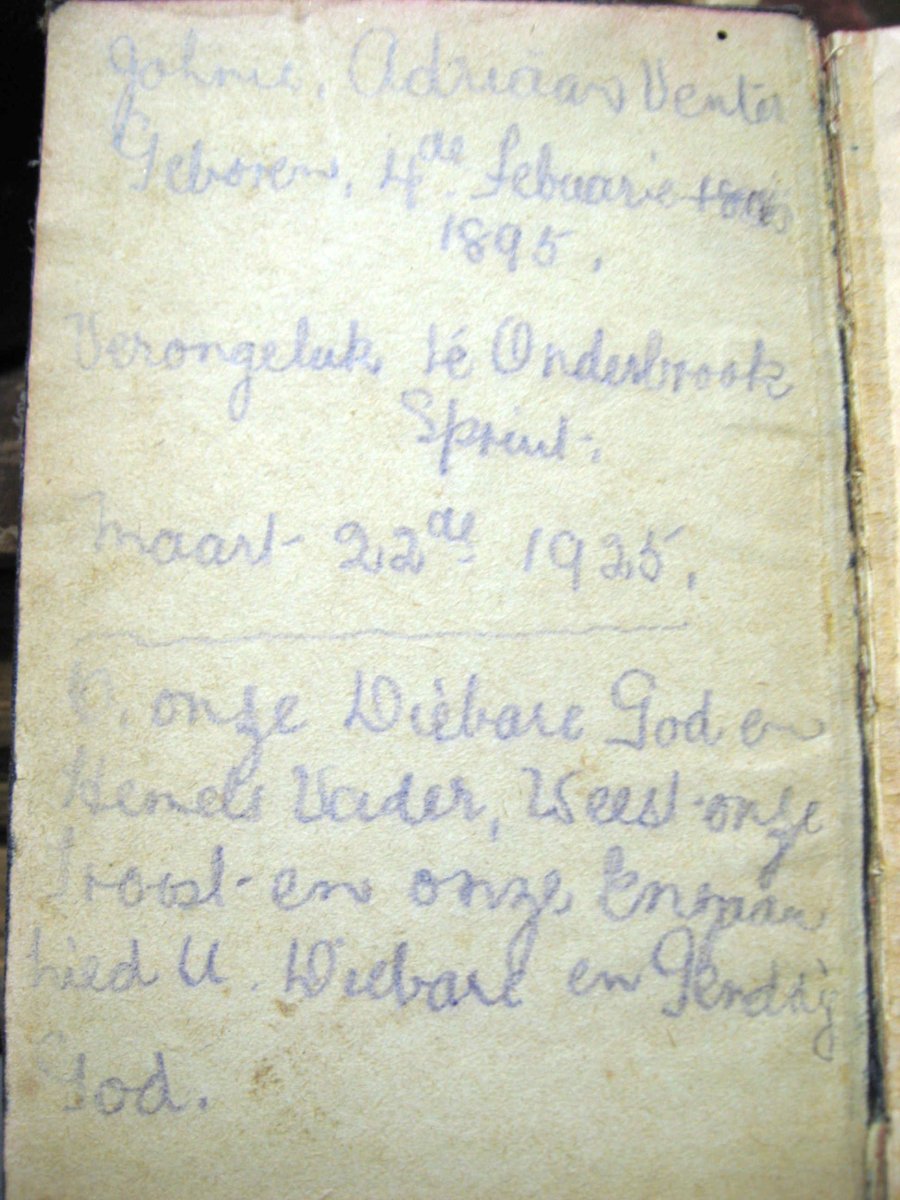 Johnie, Adriaan Venter
Geboren, 4de Febuarie
1895.
Verongeluk té Onderbrook
Spruit.
Maart 22de 1925.
O, onze Diebare God en
Hemels Vader, Weest onze
Troost en onze
U. Diebare en
God.